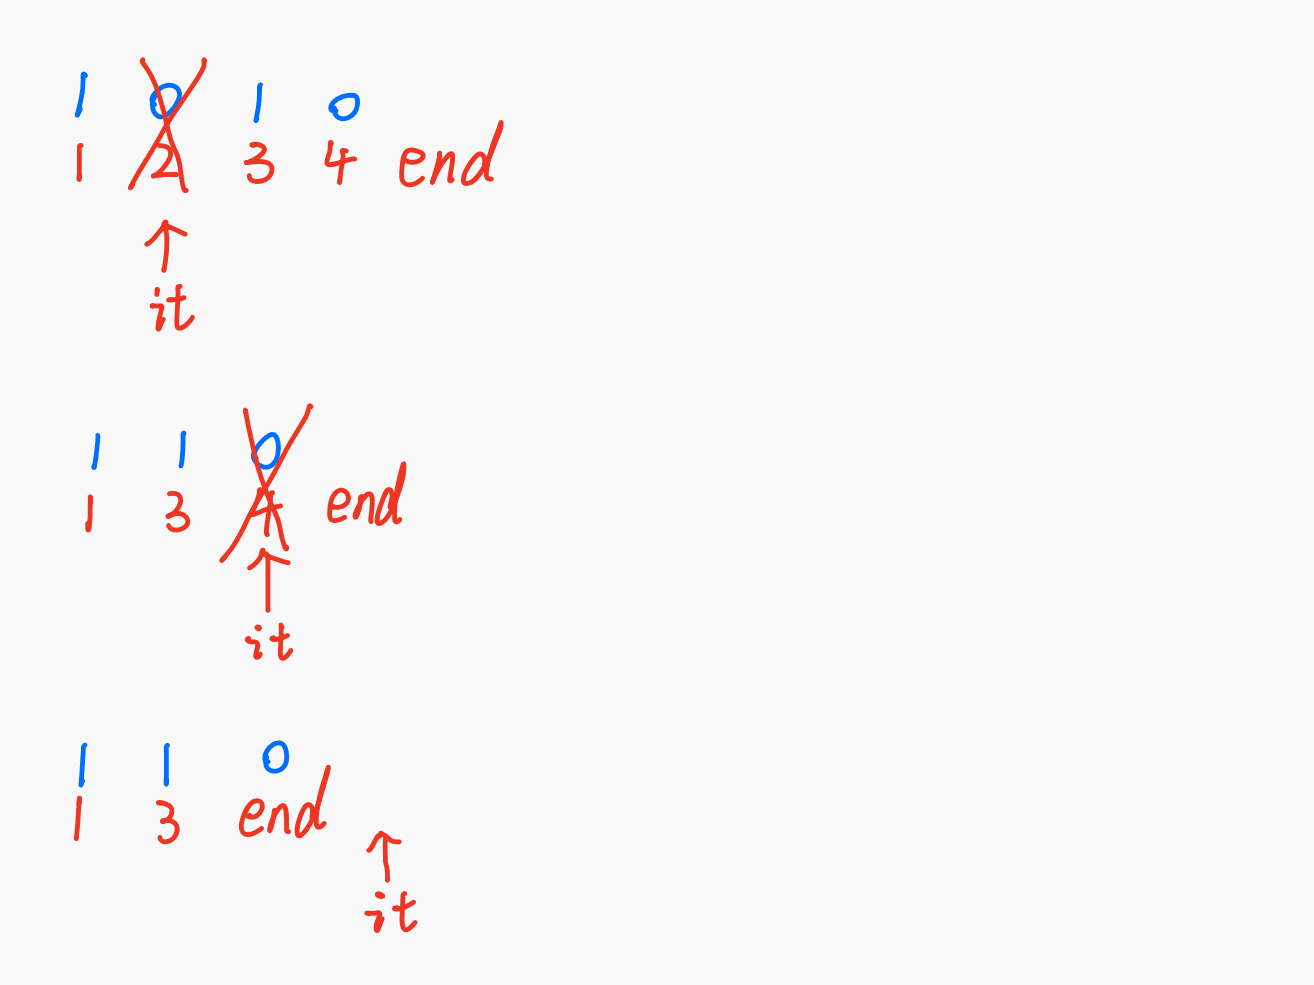 1 0 1 0
1 2 3 4 end
it
1 1 0
1 3 4 end
it
1 1 0
1 3 end
it